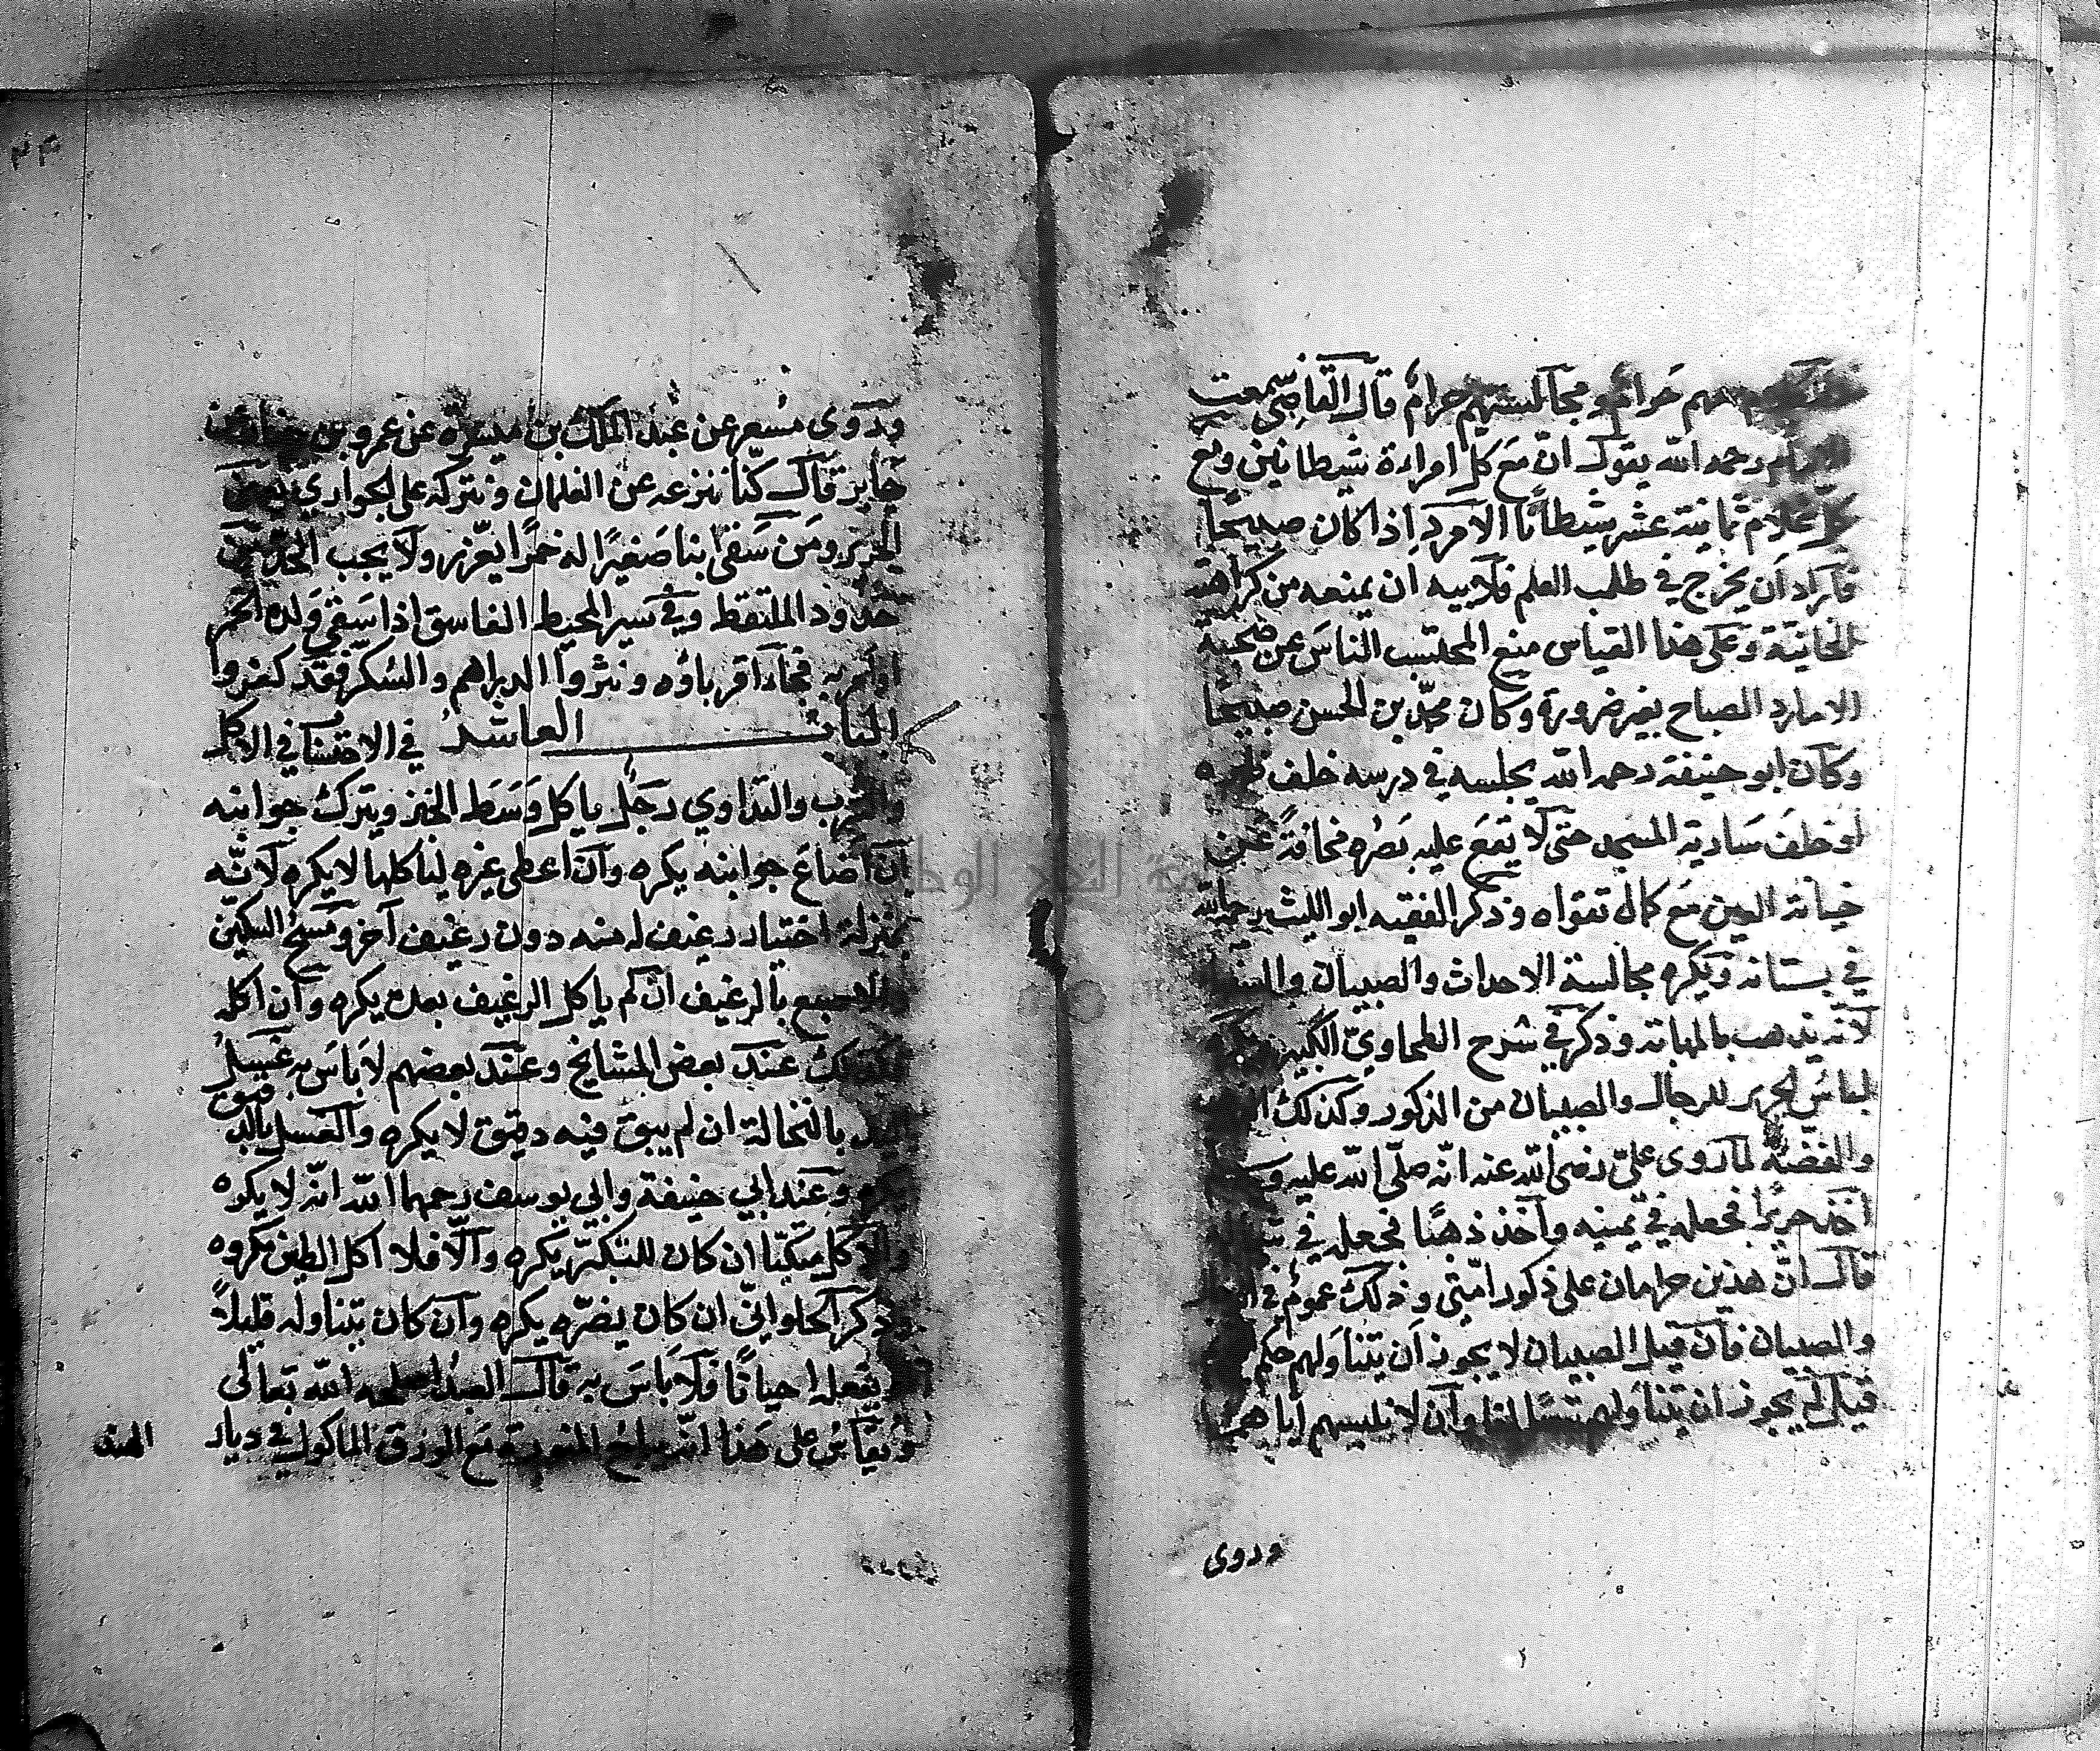 منهم حرام ومجالستهم حرام قال القاضي سمعت
الامام رحمه الله يقول ان مع كل امراءة شيطانين ومع
كل غلام ثمانية عشر شيطانا الامرد اذا كان صبيحا
فاراد ان يخرج في طلب العلم فلابيه ان يمنعه من كراهة
الخانية وعلى هذا القياس منع المحتسب الناس عن صحبة
الامارد الصباح بغير ضرورة وكان محمد بن الحسن صبيحا
وكان ابو حنيفة رحمه الله يجلسه في درسه خلف ظهره
او خلف سارية المسجد حتى لا يقع عليه بصره مخافة عن
خيانة العين مع كمال تقواه وذكر الفقيه ابو الليث رحمه الله
في بستانه ويكره مجالسة الاحداث والصبيان
لانه يذهب بالمهابة وذكر في شرح الطحاوي الكبير
لباس الحرير للرجال والصبيان من الذكور وكذلك
والفضة لما روى علي رضي الله عنه انه صلى الله عليه
اخذ حريرا فجعله في يمينه واخذ ذهبا فجعله في
قال ان هذين حرامان على ذكور امتي وذلك عموم في
والصبيان فان قيل الصبيان لا يجوز ان يتناولهم حكم
قيل لم يجوز ان يتناولهم وان لا نلبسهم اياهما
وروى
٣٣
وروى مسعر عن عبد الملك بن ميسرة عن عمرو بن عن
جابر قال كنا ننزعه عن الغلمان ونتركه على الجواري يعني
الحرير ومن سقى ابنا صغيرا له خمرا يعزر ولا يجب الحد من
حدود الملتقط وفي سير المحيط الفاسق اذا سقى ولده الخمر
اول مرة فجاء اقرباؤه ونثروا الدراهم والسكر فقد كفروا
الباب العاشر في الاحتساب في الاكل
والشرب والتداوي رجل ياكل وسط الخبز ويترك جوانبه
ان اضاع جوانبه يكره وان اعطى غيره لياكلها لا يكره لانه
بمنزلة اختيار رغيف لمنه دون رغيف آخر ومسح السكين
والاصبع بالرغيف ان لم ياكل الرغيف بعده يكره وان اكل
فكذلك عند بعض المشايخ وعند بعضهم لا باس به غسل
اليد بالنخالة ان لم يبق فيه دقيق لا يكره والغسل بالدقيق
يكره وعند ابي حنيفة وابي يوسف رحمهما الله انه لا يكره
والاكل متكئا ان كان للتكبر يكره والا فلا اكل الطين مكروه
وذكر الحلواني ان كان يضره يكره وان كان يتناوله قليلا
او يفعله احيانا فلا باس به قال العبد اصلحه الله تعالى
ويقاس على هذا انه يباح النورة مع الورق الماكول في ديار
الهند